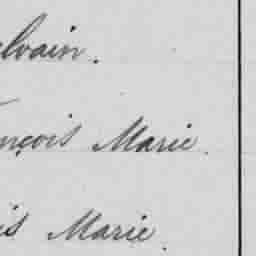 lvain.
nçois Marie.
is Marie.